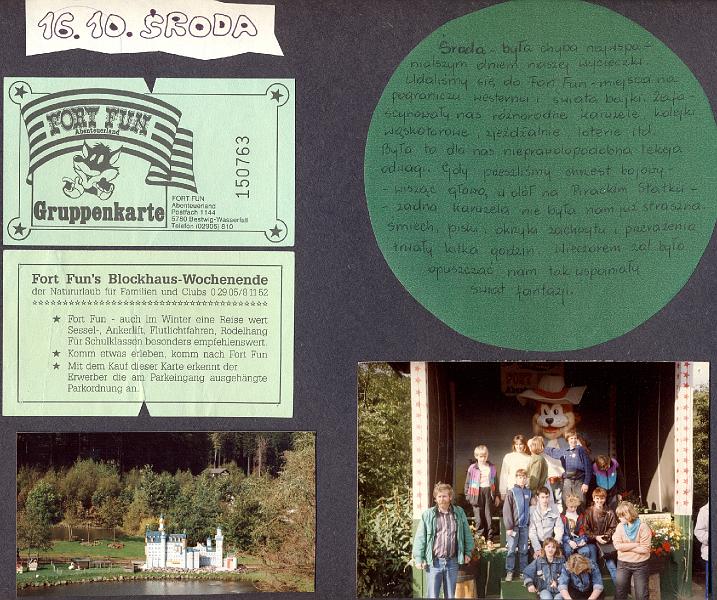 16.10. ŚRODA
FORT FUN
Abenteuerland
Gruppenkarte
FORT FUN
Abenteuerland
Postfach 1144
5780 Bestwig-Wasserfall
Telefon (02905) 810
150763
Fort Fun's Blockhaus-Wochenende
der Natururlaub für Familien und Clubs 0 29 05/8 11 52
★ Fort Fun - auch im Winter eine Reise wert
Sessel-, Ankerlift, Flutlichtfahren, Rodelhang
Für Schulklassen besonders empfehlenswert.
★ Komm etwas erleben, komm nach Fort Fun
★ Mit dem Kauf dieser Karte erkennt der
Erwerber die am Parkeingang ausgehängte
Parkordnung an.
Środa - była chyba najwspa-
nialszym dniem naszej wycieczki.
Udaliśmy się do Fort Fun - miejsca na
pograniczu westernu i świata bajki. Zafa-
scynowały nas różnorodne karuzele, kolejki
wąskotorowe, zjeżdżalnie loterie itd.
Była to dla nas nieprawdopodobna lekcja
odwagi. Gdy przeszliśmy chrzest bojowy-
- wisząc głową w dół na Pirackim Statku -
- żadna karuzela nie była nam straszna.
Śmiech, piski, okrzyki zachwytu i przerażenia
trwały kilka godzin. Wieczorem żal było
opuszczać nam tak wspaniały
świat fantazji.
FORT